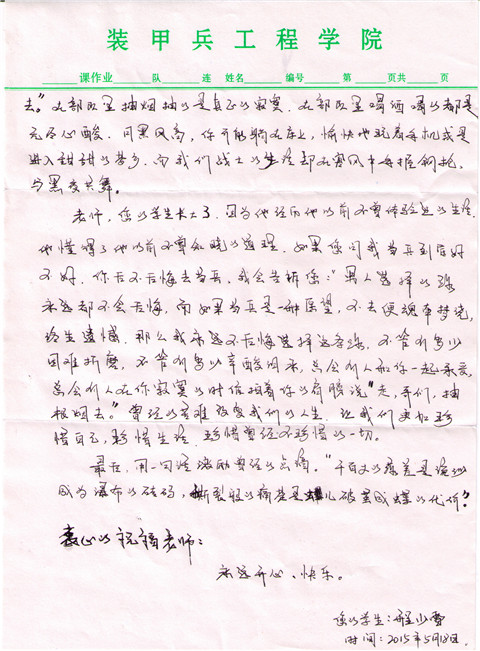 装甲兵工程学院
课作业 队 连 姓名 编号 第 页共 页
去。”在部队里抽烟抽的是真正的寂寞、在部队里喝酒喝的都是
无尽心酸、月黑风高，你可能躺在床上，愉快地玩着手机或是
进入甜甜的梦乡、而我们战士的生活却在寒风中手握钢枪、
与黑夜共舞。
老师，您的学生长大了、因为他经历他以前不曾体验过的生活、
他懂得了他以前不曾知晓的道理、如果您问我当兵到底好
不好、你后不后悔去当兵、我会告诉您：“男人选择的路
永远都不会后悔、而如果当兵是一种愿望，不去便魂牵梦绕，
终生遗憾、那么我永远不后悔选择这条路、不管有多少
困难折磨，不管有多少辛酸泪水，总会有人和你一起承受、
总会有人在你寂寞的时候拍着你的肩膀说“走，哥们，抽
根烟去。”曾经的苦难改变我们的人生、让我们更加珍
惜自己，珍惜生活、珍惜曾经不珍惜的一切。
最后，用一句话激励曾经的点滴。“千百丈的落差是溪流
成为瀑布的砝码，撕裂般的痛苦是蛹儿破茧成蝶的代价”。
衷心的祝福老师：
永远开心、快乐。
您的学生：
时间：2015年5月18日.